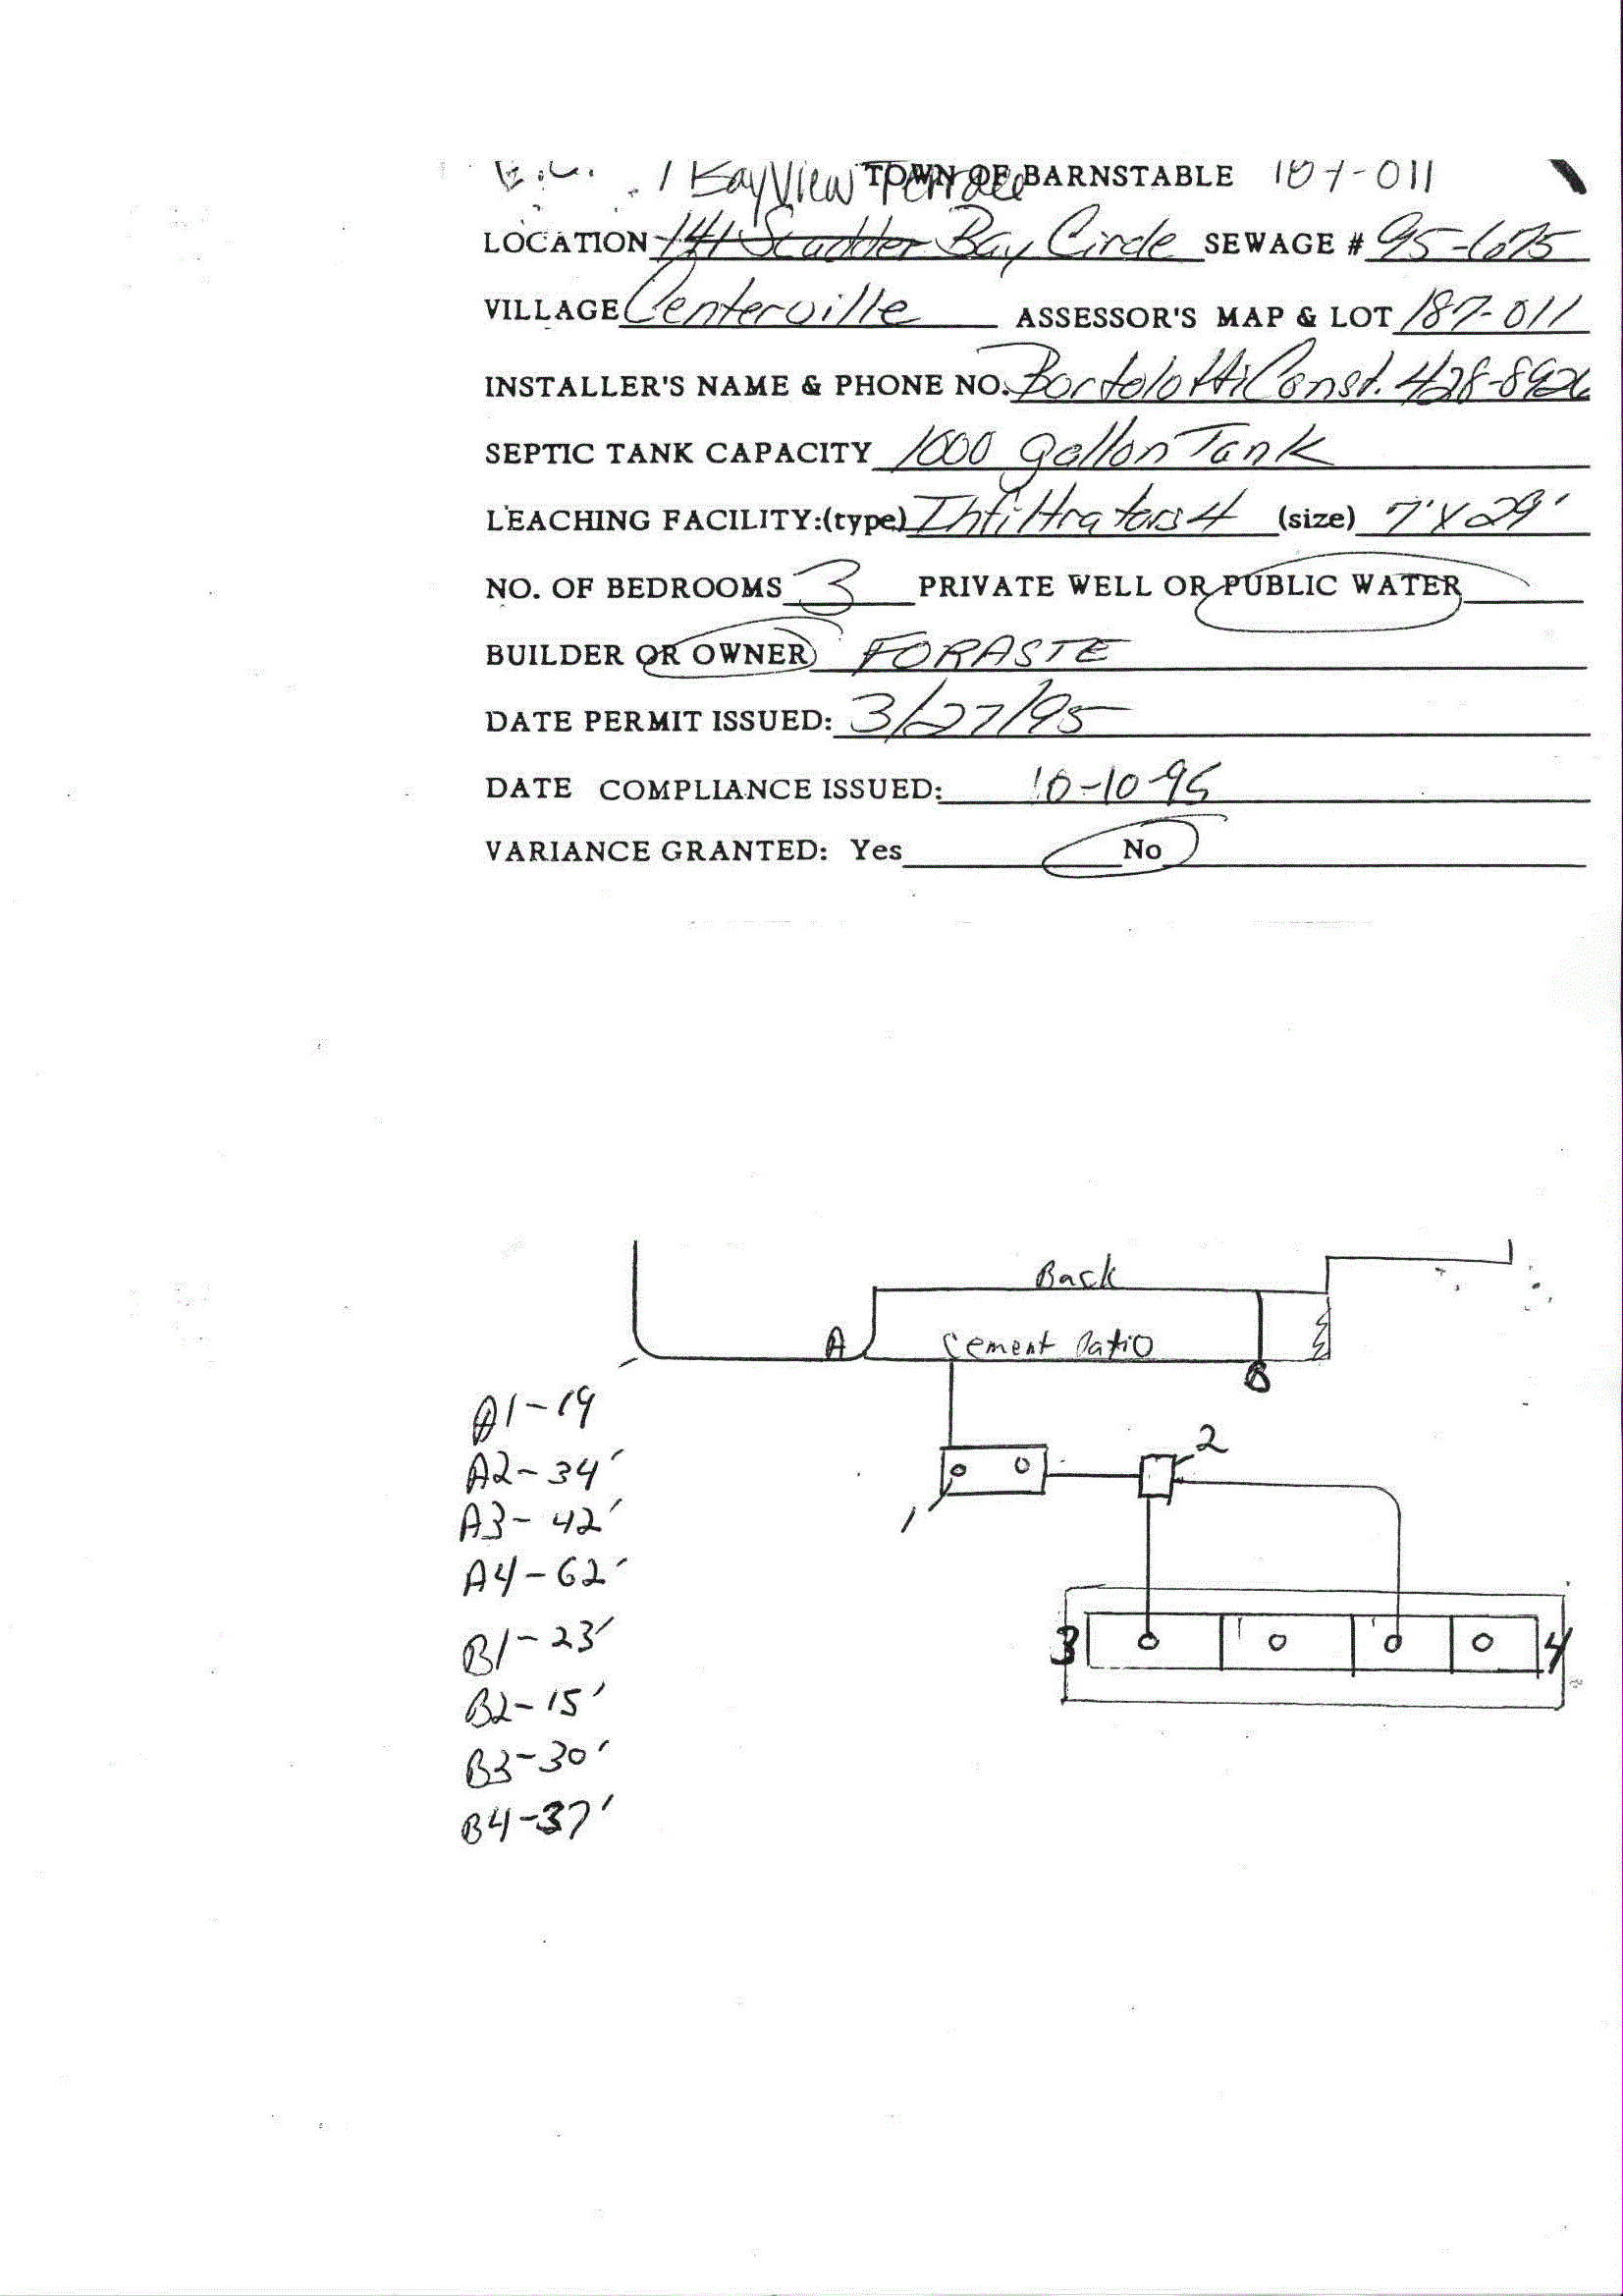 1 BayView Terrace TOWN OF BARNSTABLE 187-011
LOCATION 141 Scudder Bay Circle SEWAGE # 95-675
VILLAGE Centerville ASSESSOR'S MAP & LOT 187-011
INSTALLER'S NAME & PHONE NO. Bortolotti Const. 428-8926
SEPTIC TANK CAPACITY 1000 gallon Tank
LEACHING FACILITY:(type) Infiltrators 4 (size) 7'X29'
NO. OF BEDROOMS 3 PRIVATE WELL OR PUBLIC WATER
BUILDER OR OWNER FORASTE
DATE PERMIT ISSUED: 3/27/95
DATE COMPLIANCE ISSUED: 10-10-95
VARIANCE GRANTED: Yes No
Back
A Cement Patio
B
A1-19
A2-34'
A3-42'
A4-62'
B1-23'
B2-15'
B3-30'
B4-37'
2
1
3 4